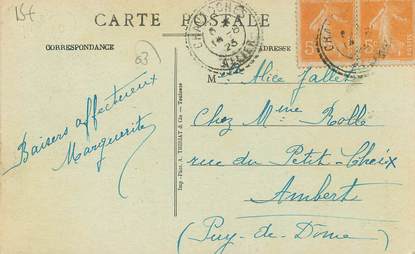 15f
CARTE POSTALE
CORRESPONDANCE
ADRESSE
63
M Alice Jallet
Chez Mme Rolle
rue du Petit-Cheix
Ambert
(Puy-de-Dome)
Baisers affectueux
Marguerite
Imp. Phot. A. THIRIAT & Cie - Toulouse
ALLIER
23
5c